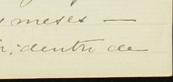 meses —
dentro de